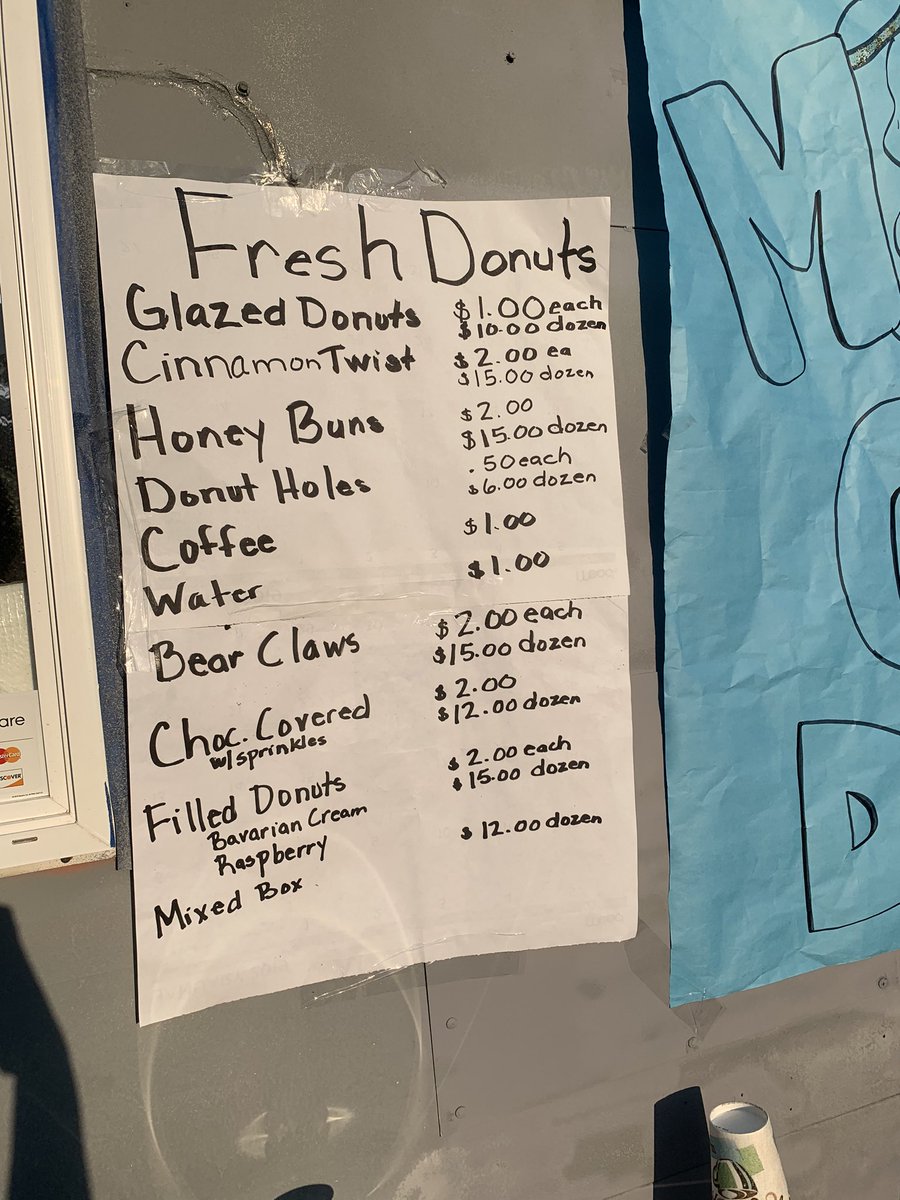 Fresh Donuts
Glazed Donuts $1.00 each
$10.00 dozen
Cinnamon Twist $2.00 ea
$15.00 dozen
Honey Buns $2.00
$15.00 dozen
Donut Holes .50 each
$6.00 dozen
Coffee $1.00
Water $1.00
Bear Claws $2.00 each
$15.00 dozen
Choc. Covered $2.00
w/sprinkles $12.00 dozen
Filled Donuts $2.00 each
Bavarian Cream $15.00 dozen
Raspberry
Mixed Box $12.00 dozen
are
DISCOVER
M
D